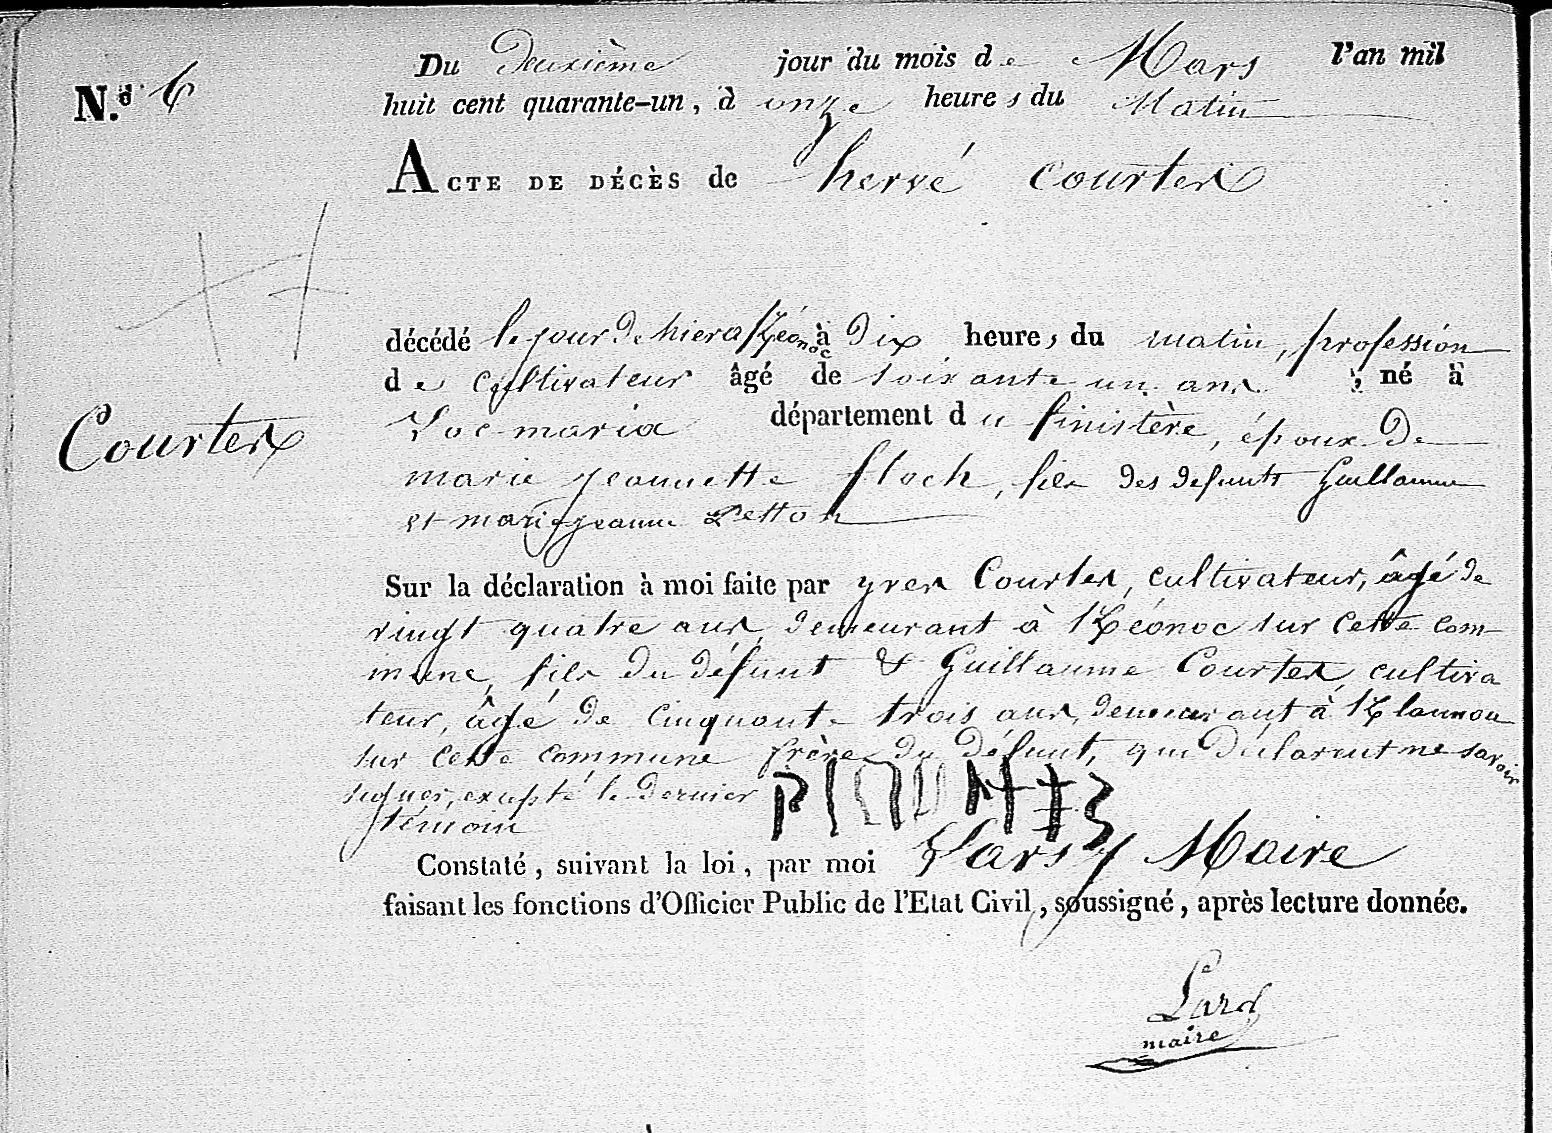 Du deuxième jour du mois de Mars l'an mil
N.º 6
huit cent quarante-un, à onze heures du Matin
ACTE DE DÉCÈS de hervé Courtes
décédé le jour de hier à Kéonoc à Dix heures du matin, profession
de cultivateur âgé de soixante un ans, né à
Courtes
Loc-maria département du finistère, époux De
marie jeannette floch, fils des defunts Guillaume
et marie jeanne
Sur la déclaration à moi faite par yves Courtes, cultivateur, âgé de
vingt quatre ans, demeurant à Kéonoc sur cette com-
mune, fils du défunt & Guillaume Courtes, cultiva
teur, âgé de cinquante trois ans, demeurant à Klannou
sur cette commune frère du défunt, qui déclarent ne savoir
signer, excepté le dernier
témoin
Constaté, suivant la loi, par moi Maire
faisant les fonctions d'Officier Public de l'Etat Civil, soussigné, après lecture donnée.
maire